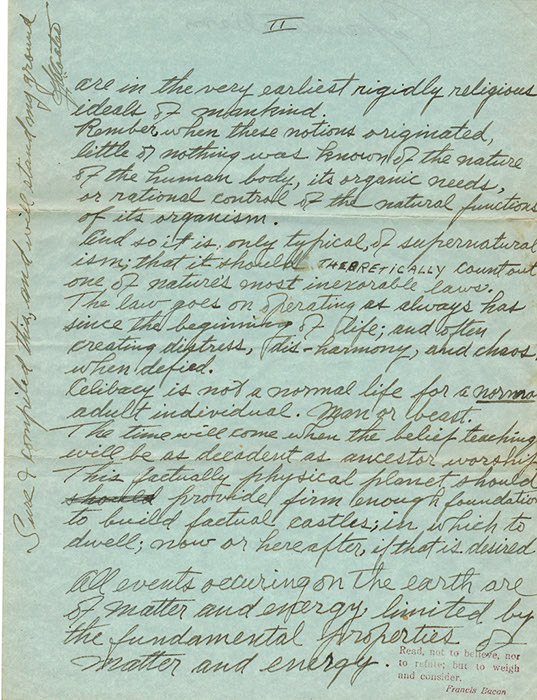 II
are in the very earliest rigidly religious
ideals of mankind.
Rember, when these notions originated,
little or nothing was known of the nature
of the human body, its organic needs,
or rational control of the natural functions
of its organism.
And so it is, only typical, of supernatural
ism; that it should THEORETICALLY count out
one of nature's most inexorable laws.
The law goes on operating as always has
since the beginning of life; and often
creating distress, dis-harmony, and chaos,
when defied.
Celibacy is not a normal life for a norma
adult individual. Man or beast.
The time will come when the belief teaching
will be as decadent as ancestor worship
This factually physical planet should
should provide firm enough foundation
to build factual castles; in which to
dwell; now or hereafter, if that is desired
All events occuring on the earth are
of matter and energy, limited by
the fundamental properties of
matter and energy.
Read, not to believe, nor
to refute; but to weigh
and consider.
Francis Bacon
Sure I compiled this, and will stand my ground